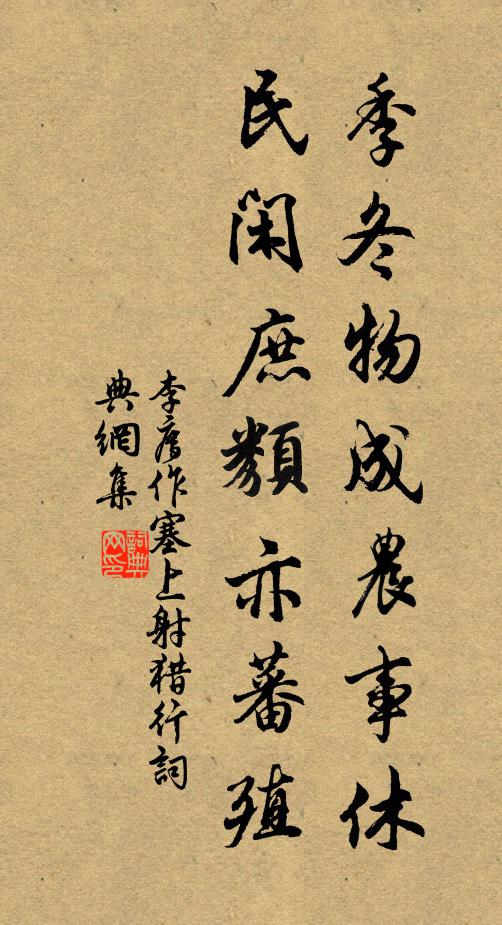 季冬物成農事休
民閑庶類亦蕃殖
李廌作塞上射猎行詞
典網集
詞典網印